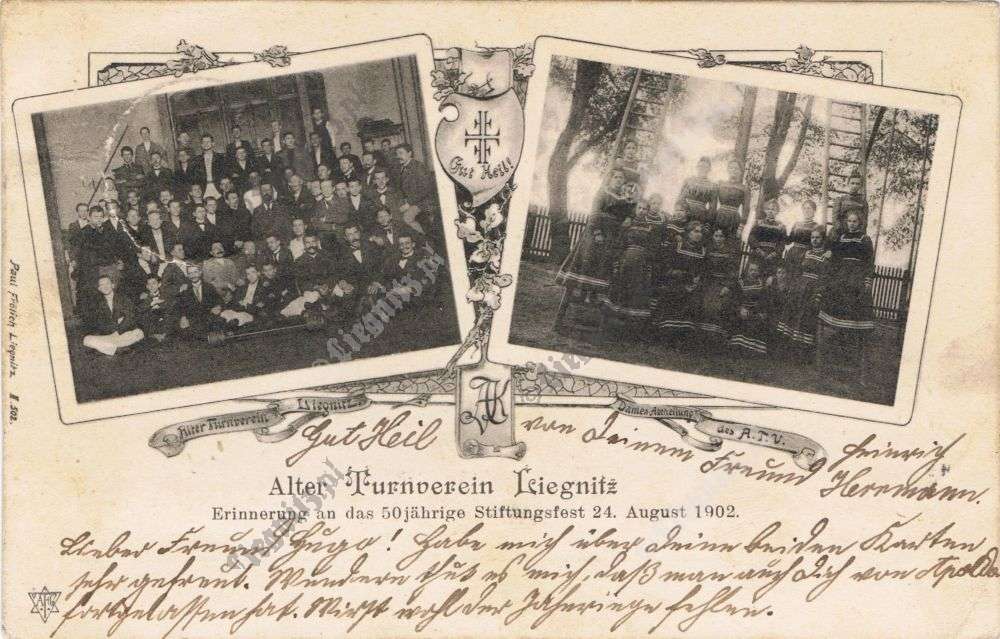 Gut Heil!
Paul Frölich Liegnitz. II 502.
Alter Turnverein Liegnitz.
Damen-Abtheilung des A.T.V.
Gut Heil von Deinem Freund Heinrich Herrmann.
Alter Turnverein Liegnitz
Erinnerung an das 50jährige Stiftungsfest 24. August 1902.
Lieber Freund Hugo! Habe mich über Deine beiden Karten
sehr gefreut. Wundern thut es mich, daß man auch Dich von Apolda
fortgelassen hat. Wirst wohl der fehlen.
© Liegnitz.pl